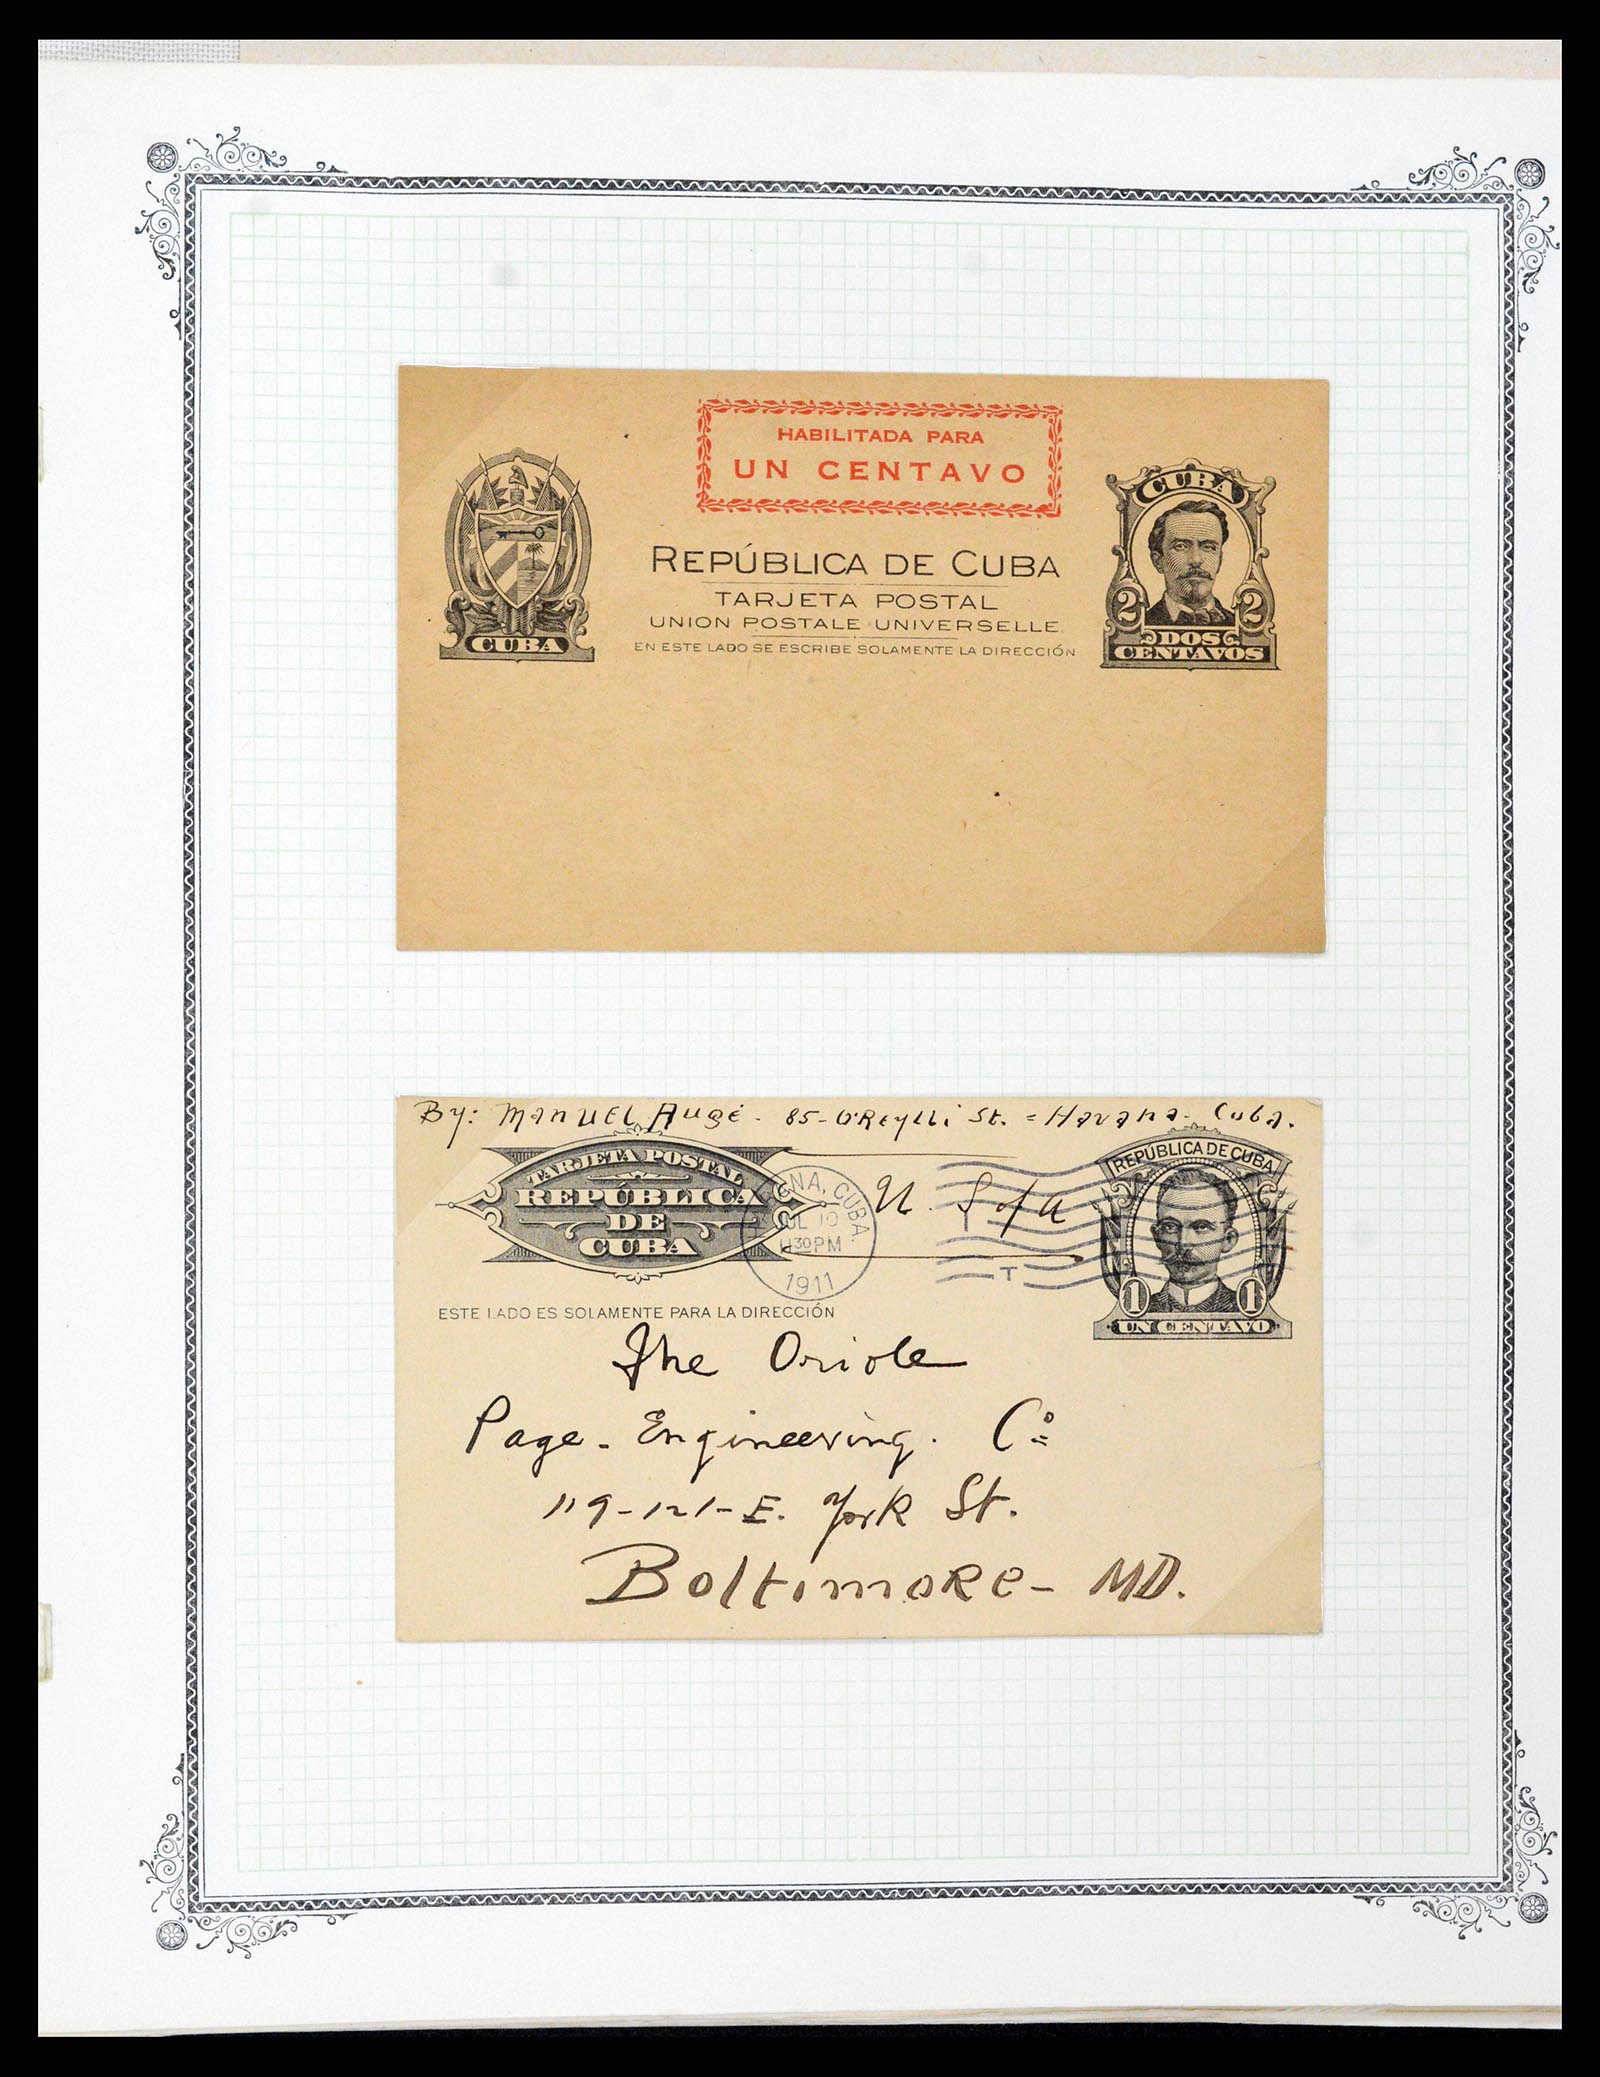 HABILITADA PARA
UN CENTAVO
CUBA
REPÚBLICA DE CUBA
TARJETA POSTAL
UNION POSTALE UNIVERSELLE
EN ESTE LADO SE ESCRIBE SOLAMENTE LA DIRECCIÓN
CUBA
2 2
DOS
CENTAVOS
By: Manuel Augé. 85-O'Reylli St. = Havana- Cuba.
TARJETA POSTAL
REPÚBLICA
DE
CUBA
NA, CUBA.
10
11 30 PM
1911
U. S of A
T
REPÚBLICA DE CUBA
1 1
UN CENTAVO
ESTE LADO ES SOLAMENTE PARA LA DIRECCIÓN
The Oriole
Page. Engineering. Co
119-121-E. York St.
Boltimore- MD.